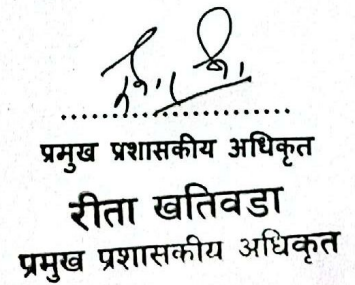 ..............................
प्रमुख प्रशासकीय अधिकृत
रीता खतिवडा
प्रमुख प्रशासकीय अधिकृत